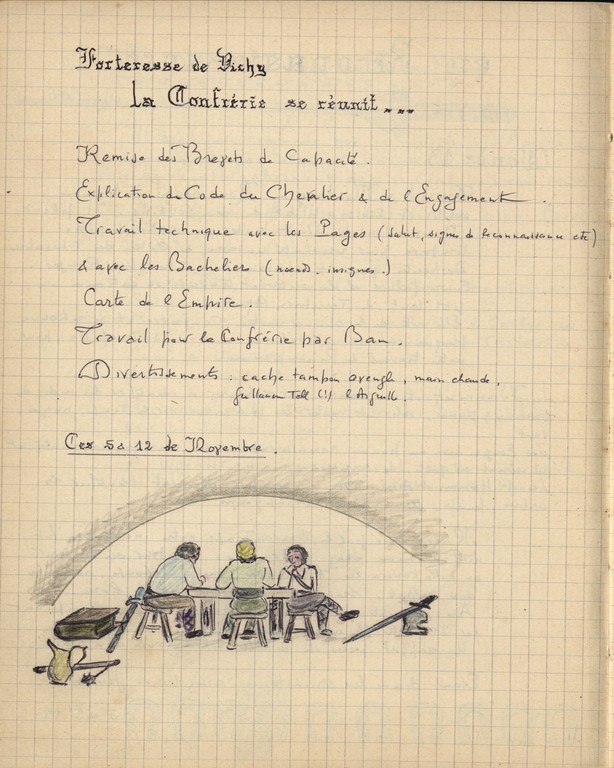 Forteresse de Vichy
la Confrérie se réunit...
Remise des Brevets de Capacité.
Explication du Code du Chevalier & de l'Engagement.
Travail technique avec les Pages (salut, signes de reconnaissance etc)
& avec les Bacheliers (noeuds. insignes.)
Carte de l'Empire.
Travail pour la Confrérie par Ban.
Divertissements : cache tampon aveugle, main chaude,
Guillaume Tell (!) l'Aiguille.
Ces 5 & 12 de Novembre.